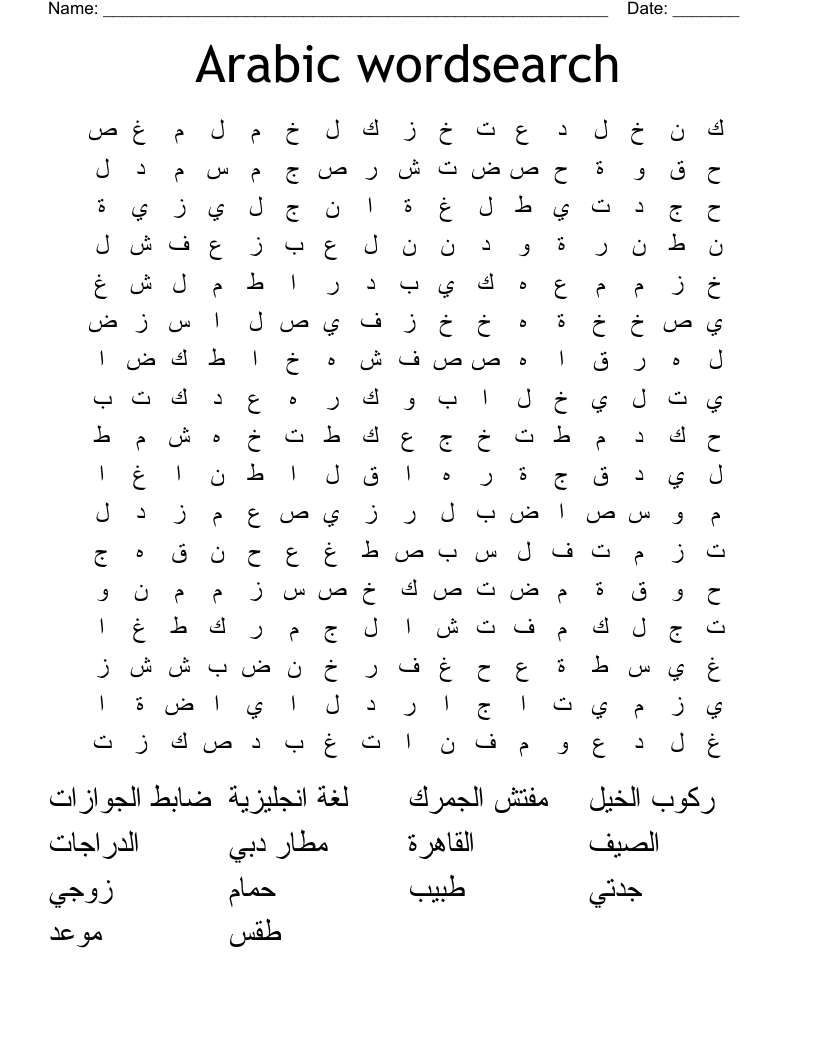 Name: ______________________________________________________ Date: _______
Arabic wordsearch
ك ن خ ل د ع ت خ ز ك ل خ م ل م غ ص
ح ق و ة ح ص ض ت ش ر ص ج م س م د ل
ح ج د ت ي ط ل غ ة ا ن ج ل ي ز ي ة
ن ط ن ر ة و د ن ن ل ع ب ز ع ف ش ل
خ ز م م ع ه ك ي ب د ر ا ط م ل ش غ
ي ص خ خ ة ه خ خ ز ف ي ص ل ا س ز ض
ل ه ر ق ا ه ص ص ف ش ه خ ا ط ك ض ا
ي ت ل ي خ ل ا ب و ك ر ه ع د ك ت ب
ح ك د م ط ت خ ج ع ك ط ت خ ه ش م ط
ل ي د ق ج ة ر ه ا ق ل ا ط ن ا غ ا
م و س ص ا ض ب ل ر ز ي ص ع م ز د ل
ت ز م ت ف ل س ب ص ط غ ع ح ن ق ه ج
ح و ق ة م ض ت ص ك خ ص س ز م م ن و
ت ج ل ك م ف ت ش ا ل ج م ر ك ط غ ا
غ ي س ط ة ع ح غ ف ر خ ن ض ب ش ش ز
ي ز م ي ت ا ج ا ر د ل ا ي ا ض ة ا
غ ل د ع و م ف ن ا ت غ ب د ص ك ز ت
ركوب الخيل مفتش الجمرك لغة انجليزية ضابط الجوازات
الصيف القاهرة مطار دبي الدراجات
جدتي طبيب حمام زوجي
طقس موعد